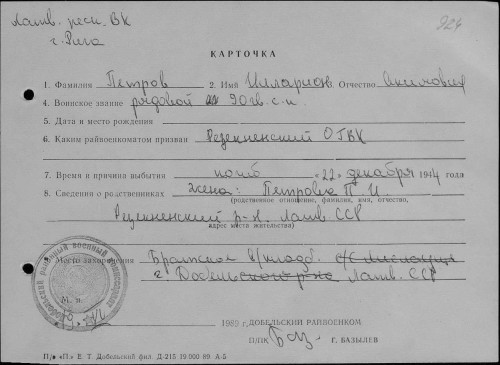 Латв. респ. ВК
г. Рига
924
КАРТОЧКА
1. Фамилия Петров 2. Имя Илларион Отчество
4. Воинское звание рядовой 90 гв. с.п.
5. Дата и место рождения
6. Каким райвоенкоматом призван Резекненский ОГВК
7. Время и причина выбытия погиб «22» декабря 1944 года
8. Сведения о родственниках жена: Петрова П. И.
(родственное отношение, фамилия, имя, отчество,
Резекненский р-н. Латв. ССР
адрес места жительства)
Место захоронения Братское в/кладб.
г. Добеле Латв. ССР
М. п.
1989 г. ДОБЕЛЬСКИЙ РАЙВОЕНКОМ
П/ПК Баз Г. БАЗЫЛЕВ
П/о «П.» Е. Т. Добельский фил. Д-215 19 000 89 А-5